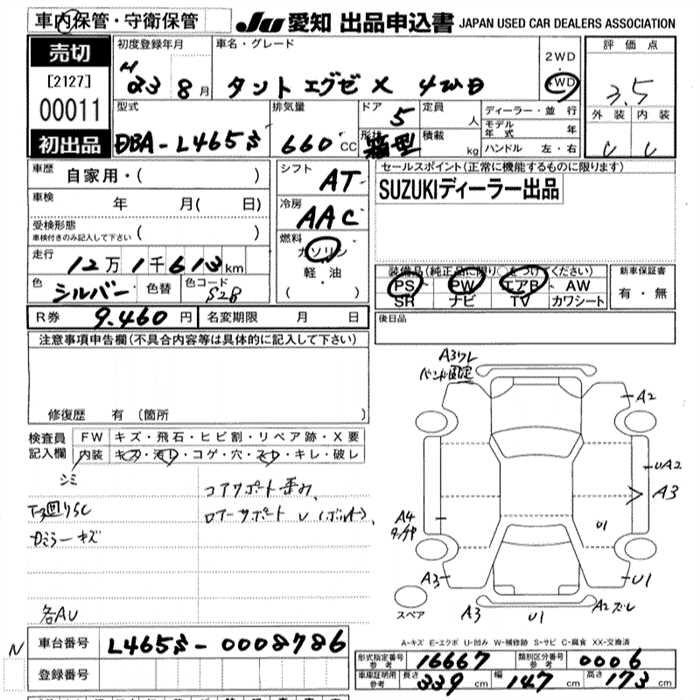 車内保管・守衛保管
JU 愛知 出品申込書 JAPAN USED CAR DEALERS ASSOCIATION
売切
[2127]
00011
初出品
初度登録年月
H 23 8月
車名・グレード
タント エグゼ X 4WD
2WD
4WD
評価点
3.5
外装 内装
C C
型式
DBA-L465S
排気量
660 CC
ドア 5
形状 箱型
定員 人
積載 kg
ディーラー・並行
モデル年式 年
ハンドル 左・右
車歴 自家用・( )
車検 年 月( 日)
受検形態
車検付きのみ記入して下さい ( )
走行 12万1千613km
色 シルバー 色替 色コード S28
シフト AT
冷房 AAC
燃料
ガソリン
軽・油
( )
セールスポイント(正常に機能するものに限ります)
SUZUKIディーラー出品
装備品(純正品に限り○をつけてください)
PS PW エアB AW
SR ナビ TV カワシート
新車保証書
有・無
R券 9.460円 名変期限 月 日
後日品
注意事項申告欄(不具合内容等は具体的に記入して下さい)
修復歴 有 (箇所 )
検査員
記入欄
FW キズ・飛石・ヒビ割・リペア跡・X要
内装 キズ・汚レ・コゲ・穴・スレ・キレ・破レ
シミ
コアサポート歪み、
ロアーサポートU(ボルト)、
各AU
A3ワレ
A2
UA2
A3
U1
A4
A3
U1
スペア
A3
U1
A2ズレ
A-キズ E-エクボ U-凹み W-補修跡 S-サビ C-腐食 XX-交換済
N
車台番号 L465S-0008786
登録番号
形式指定番号
参考 16667
類別区分番号
参考 0006
車庫証明用
参考 長さ 339cm 幅 147cm 高さ 173cm